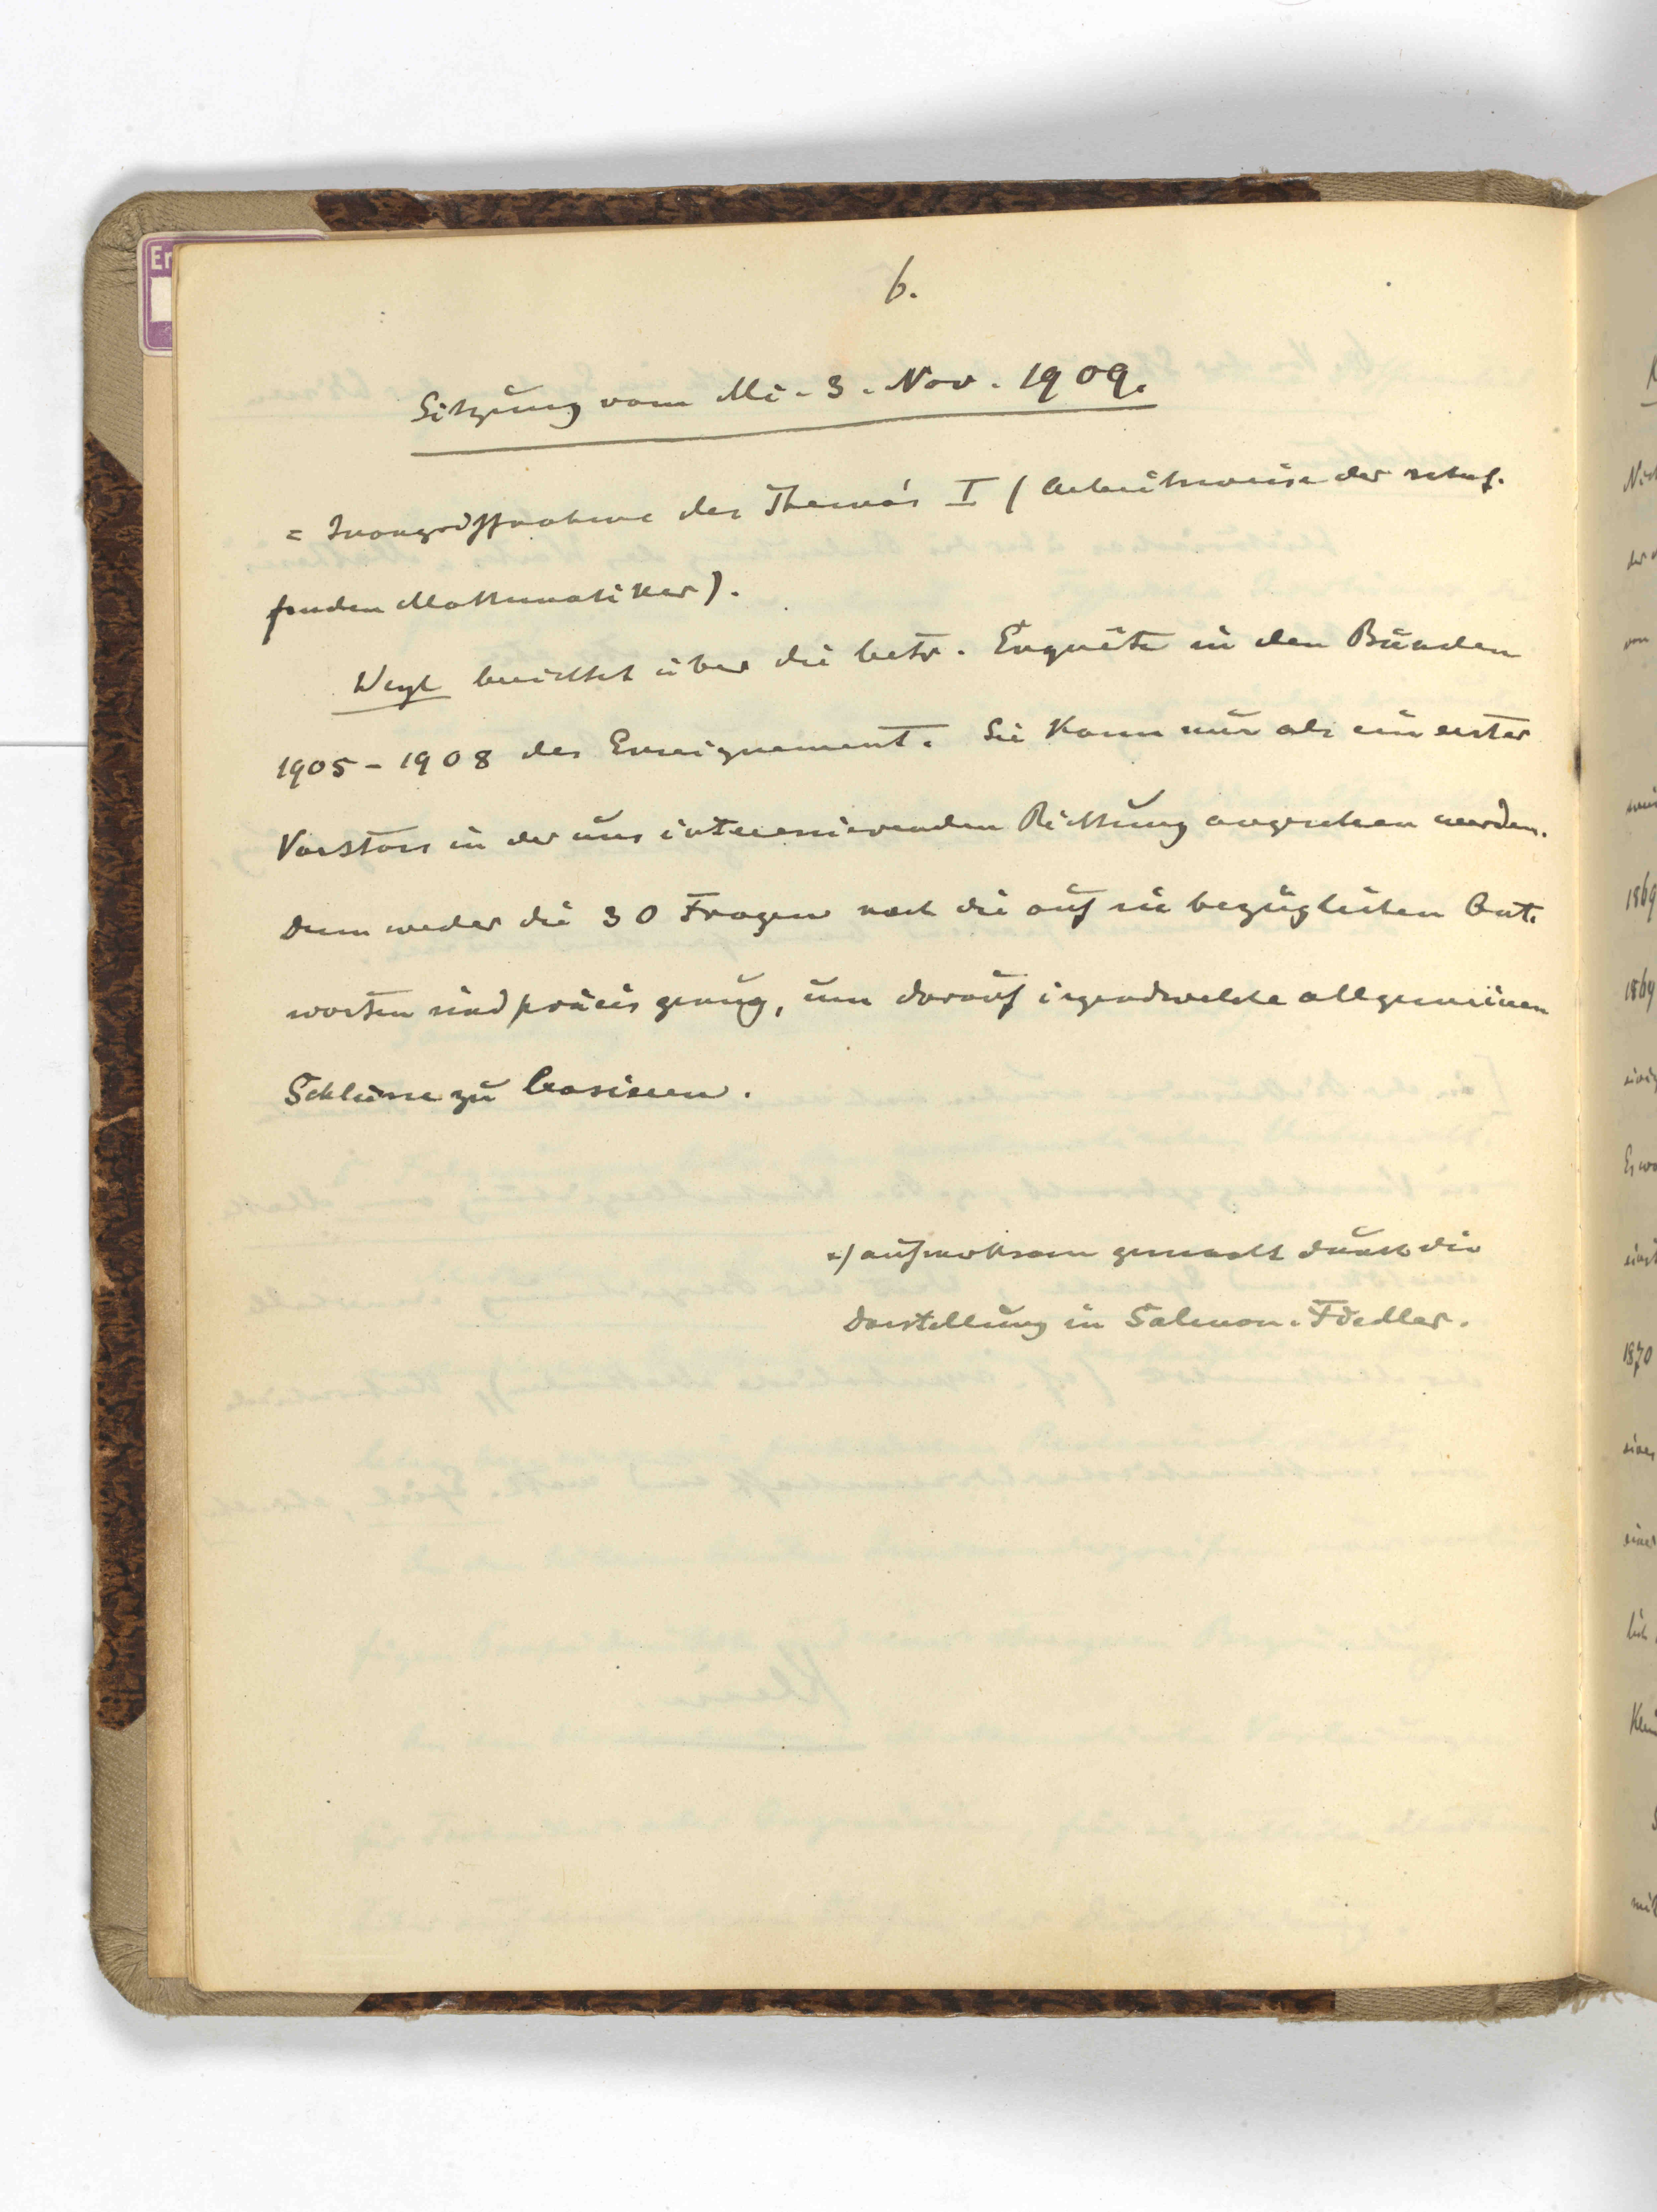 6.
Sitzung vom Mi. 3. Nov. 1909.
= Inangriffnahme des Thema's I (Arbeitsweise der schaf-
fenden Mathematiker).
Weyl berichtet über die betr. Enquête in den Bänden
1905-1908 des Enseignement. Sie kann nur als ein erster
Vorstoss in der uns interessierenden Richtung angesehen werden.
Denn weder die 30 Fragen noch die auf sie bezüglichen Ant-
worten sind präcis genug, um darauf irgendwelche allgemeinen
Schlüsse zu basieren.
*) aufmerksam gemacht durch die
Darstellung in Salmon-Fiedler.